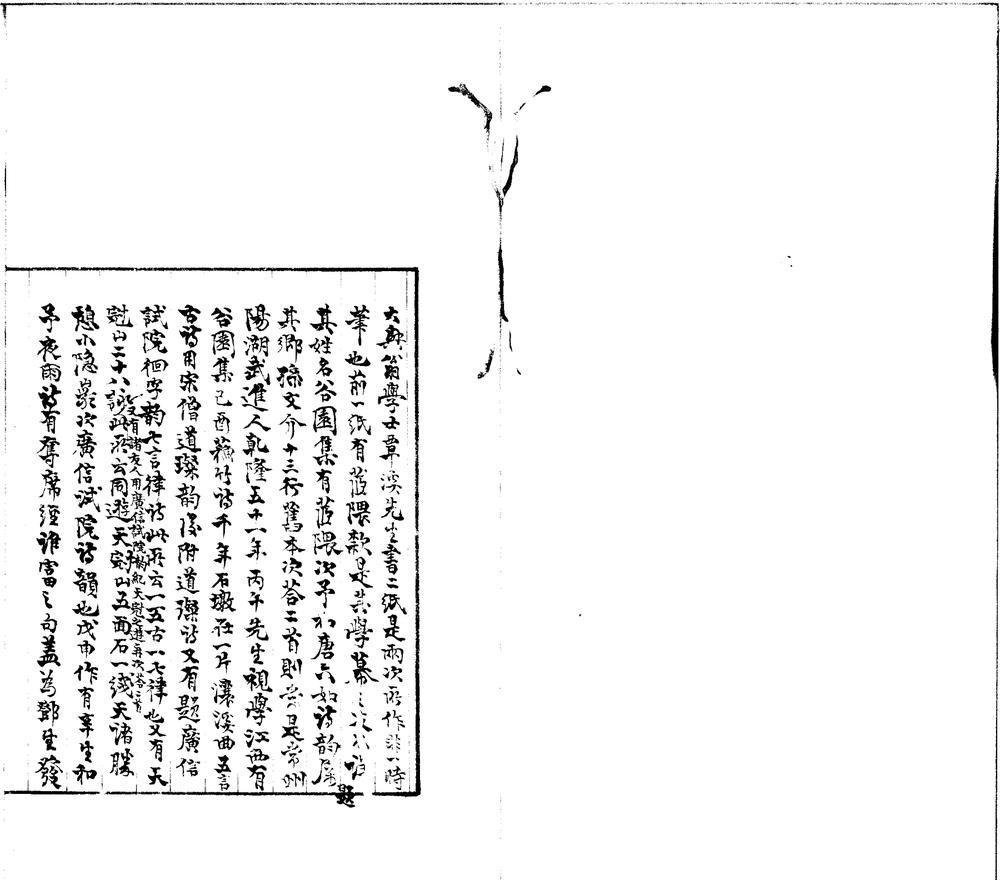 大興翁學士覃溪先生書二紙是兩次所作非一時
筆也前一紙有蓝隈款是其學幕之次
題
其姓名谷園集有蓝隈次予和唐六如詩韵
其鄉孫文介十三行舊本次荅二首則常是常州
陽湖武進人乾隆五十一年丙午先生視學江西有
谷園集己酉蘓竹詩千年石墩在一片瀼溪曲五言
古詩用宋僧道璨韵後附道璨詩又有題廣信
試院徊字韵七言律詩此所云一五古一七律也又有天
冠山二十八詠此所云同遊天冠山五面石一綫天諸勝
又有諸友人用廣信試院韵紀天冠之遊再次荅二首
憩小隐巖次廣信試院詩韻也戊申作有辛生和
予夜雨詩有奪席經誰富之句蓋為鄧生發